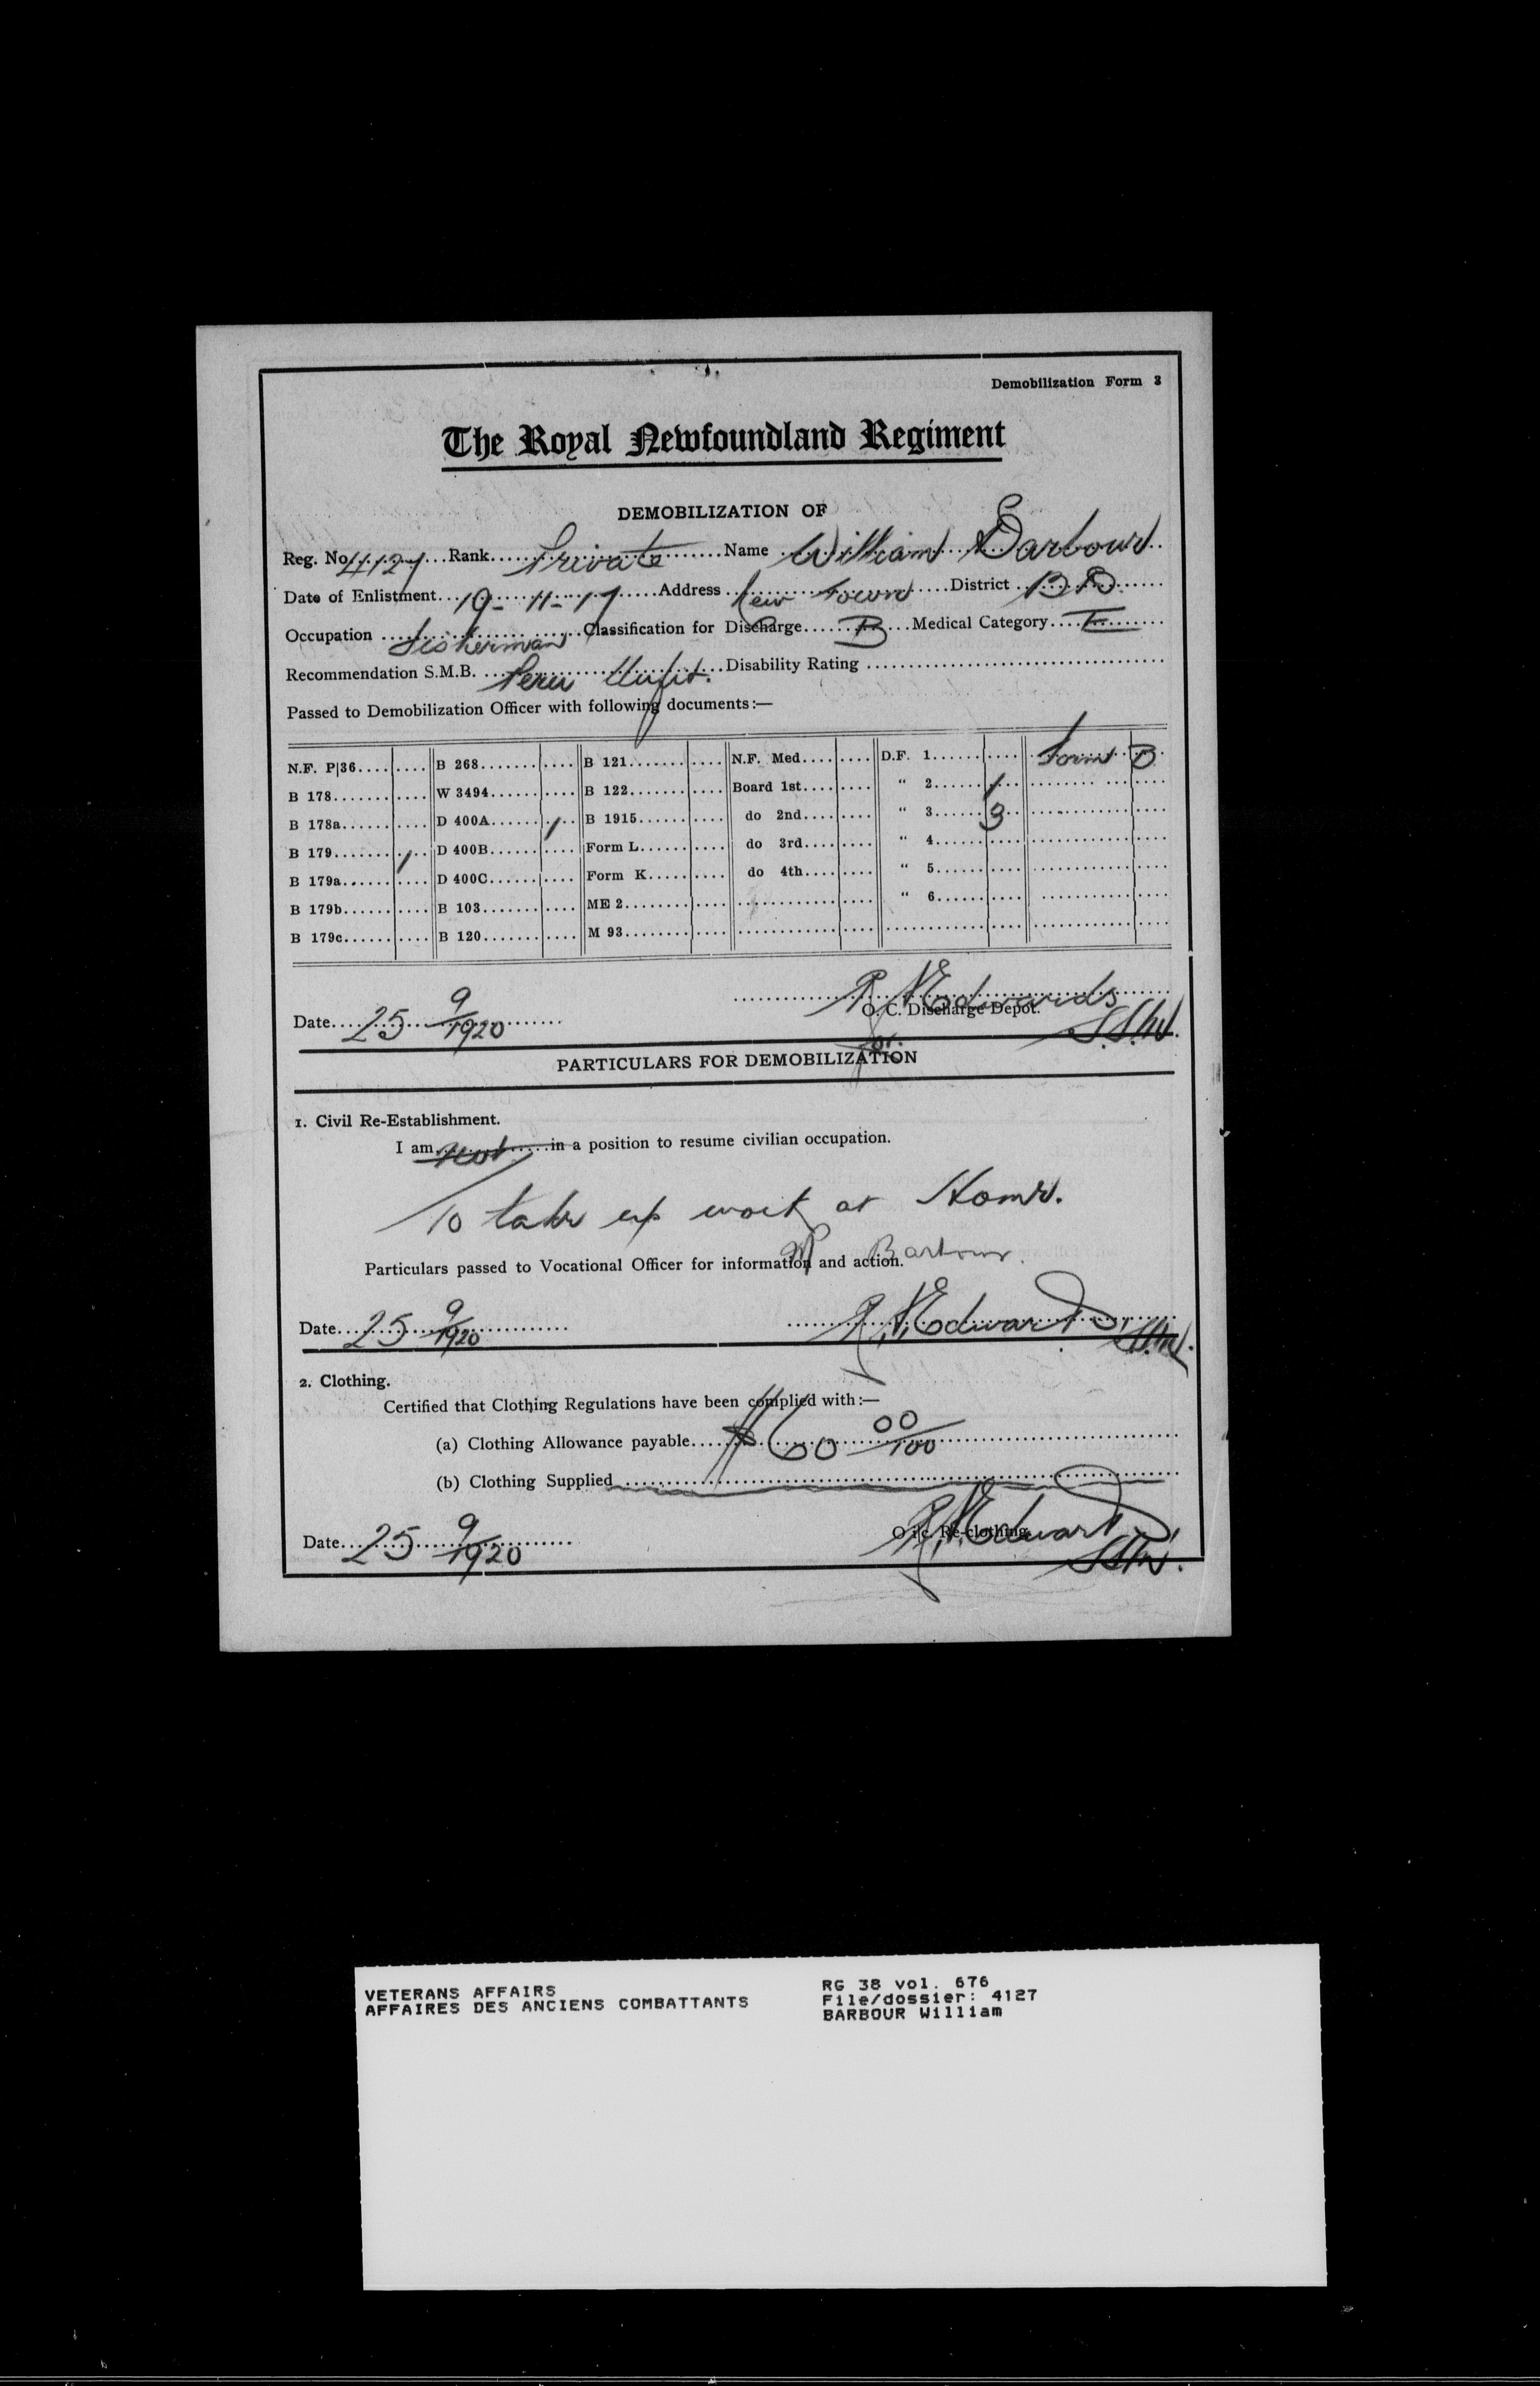 Demobilization Form 3
The Royal Newfoundland Regiment
DEMOBILIZATION OF
Reg. No. 4127 Rank Private Name William Barbour
Date of Enlistment 19-11-17 Address New Town District B B
Occupation Fisherman Classification for Discharge B Medical Category E
Recommendation S.M.B. Perm Unfit. Disability Rating
Passed to Demobilization Officer with following documents:—
N.F. P|36 B 268 B 121 N.F. Med D.F. 1 Form B
B 178 W 3494 B 122 Board 1st " 2 1
B 178a D 400A 1 B 1915 do 2nd " 3 3
B 179 1 D 400B Form L do 3rd " 4
B 179a D 400C Form K do 4th " 5
B 179b B 103 ME 2 " 6
B 179c B 120 M 93
Date 25 9/1920 Edwards
O. C. Discharge Depot.
for
PARTICULARS FOR DEMOBILIZATION
1. Civil Re-Establishment.
I am not in a position to resume civilian occupation.
To take up work at Home.
W Barbour
Particulars passed to Vocational Officer for information and action.
Date 25 9/1920 Edwards
2. Clothing.
Certified that Clothing Regulations have been complied with:—
(a) Clothing Allowance payable $60 00/100
(b) Clothing Supplied
Date 25 9/1920 Edwards
O i/c. Re-clothing
VETERANS AFFAIRS
AFFAIRES DES ANCIENS COMBATTANTS
RG 38 vol. 676
File/dossier: 4127
BARBOUR William